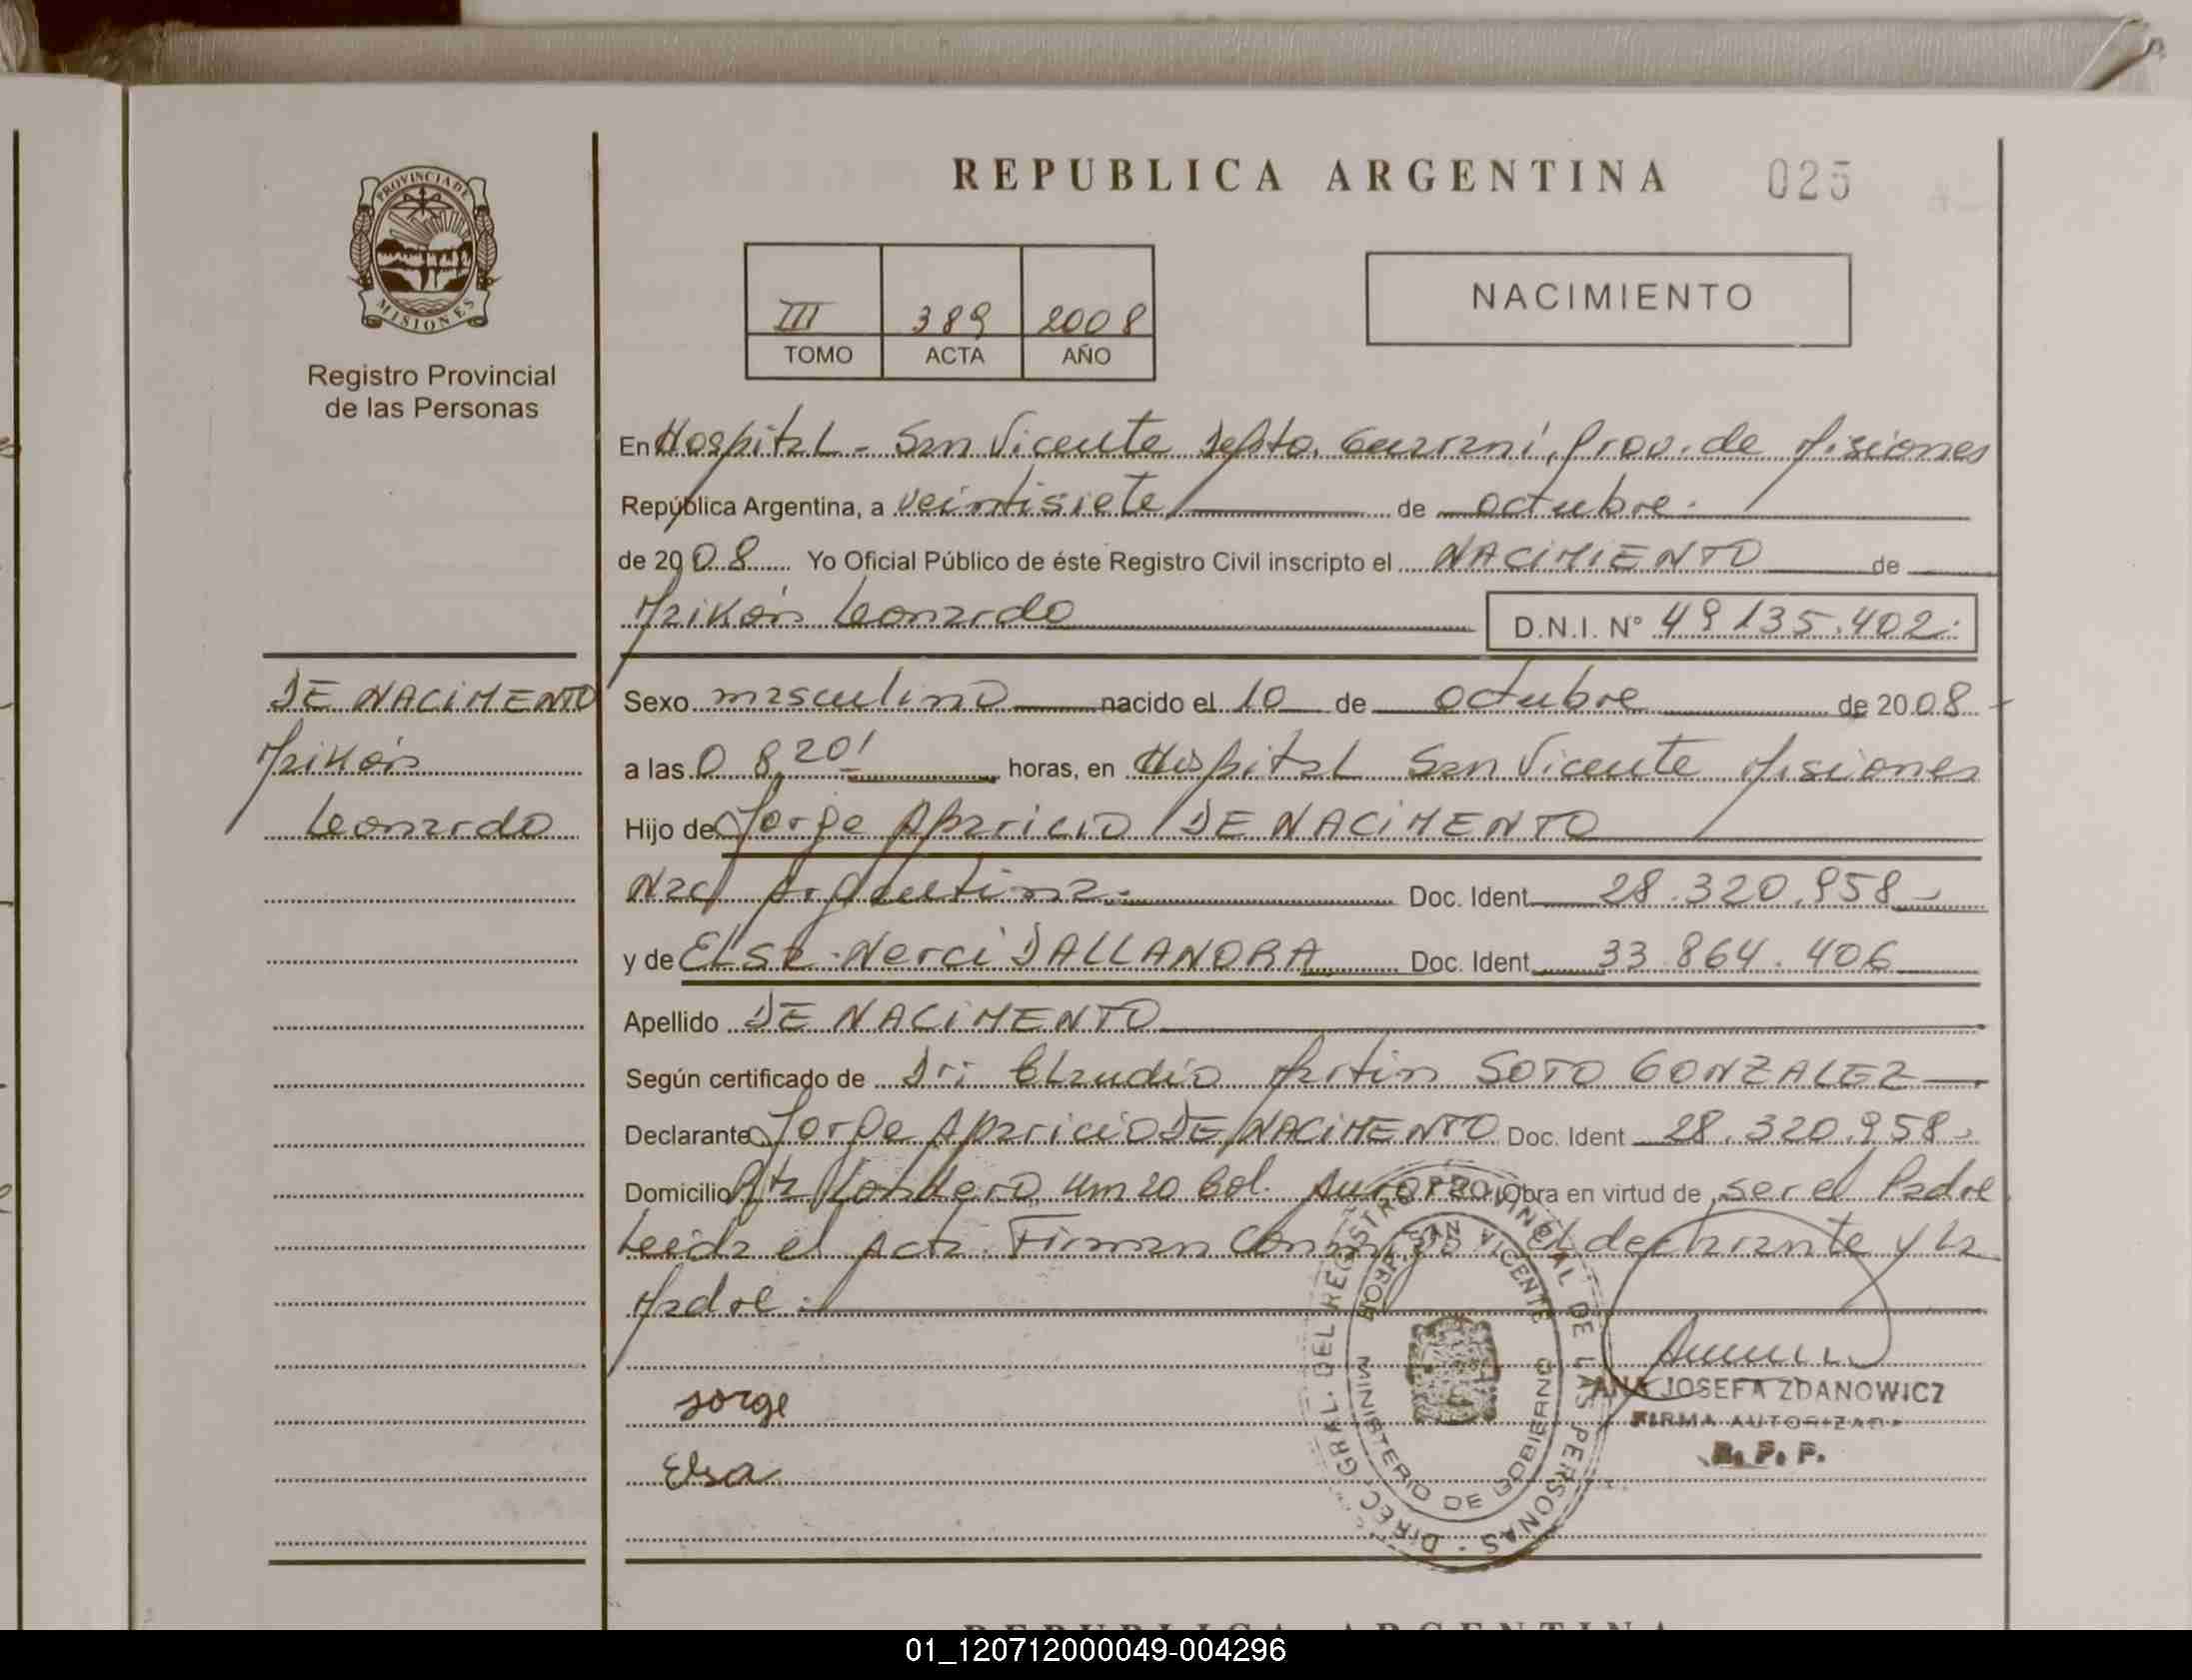 REPUBLICA ARGENTINA 025
PROVINCIA DE
MISIONES
Registro Provincial
de las Personas
III 389 2008
TOMO ACTA AÑO
NACIMIENTO
En Hospital - San Vicente Depto. Guarani, Prov. de Misiones
República Argentina, a veintisiete de octubre.
de 2008 Yo Oficial Público de éste Registro Civil inscripto el NACIMIENTO de
Maikon Leonardo D.N.I. N° 49135.402.
DE NACIMENTO
Maikon
Leonardo
Sexo masculino nacido el 10 de octubre de 2008
a las 08,20' horas, en Hospital San Vicente Misiones
Hijo de Jorge Aparicio DE NACIMENTO
Nac Argentina. Doc. Ident 28.320.958
y de Elsa Nerci DALLANORA Doc. Ident 33.864.406
Apellido DE NACIMENTO
Según certificado de Dr: Claudio Martin SOTO GONZALEZ
Declarante Jorge Aparicio DE NACIMENTO Doc. Ident 28.320.958
Domicilio km 20 Col. Obra en virtud de ser el Padre
Leida el Acta. Firman el declarante y la
Madre.
Jorge
Elsa
DIREC. GRAL. DEL REGISTRO PROVINCIAL DE LAS PERSONAS
HOSP. SAN VICENTE
MINISTERIO DE GOBIERNO
ANA JOSEFA ZDANOWICZ
FIRMA AUTORIZADA
R. P. P.
REPUBLICA ARGENTINA
01_120712000049-004296